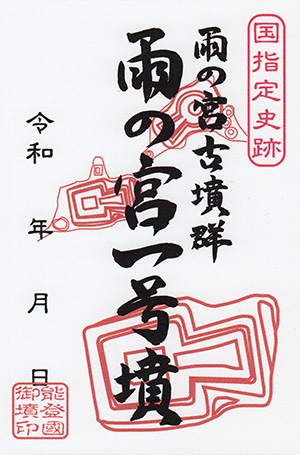 国指定史跡
雨の宮古墳群
雨の宮一号墳
令和 年 月 日
能登國
御墳印